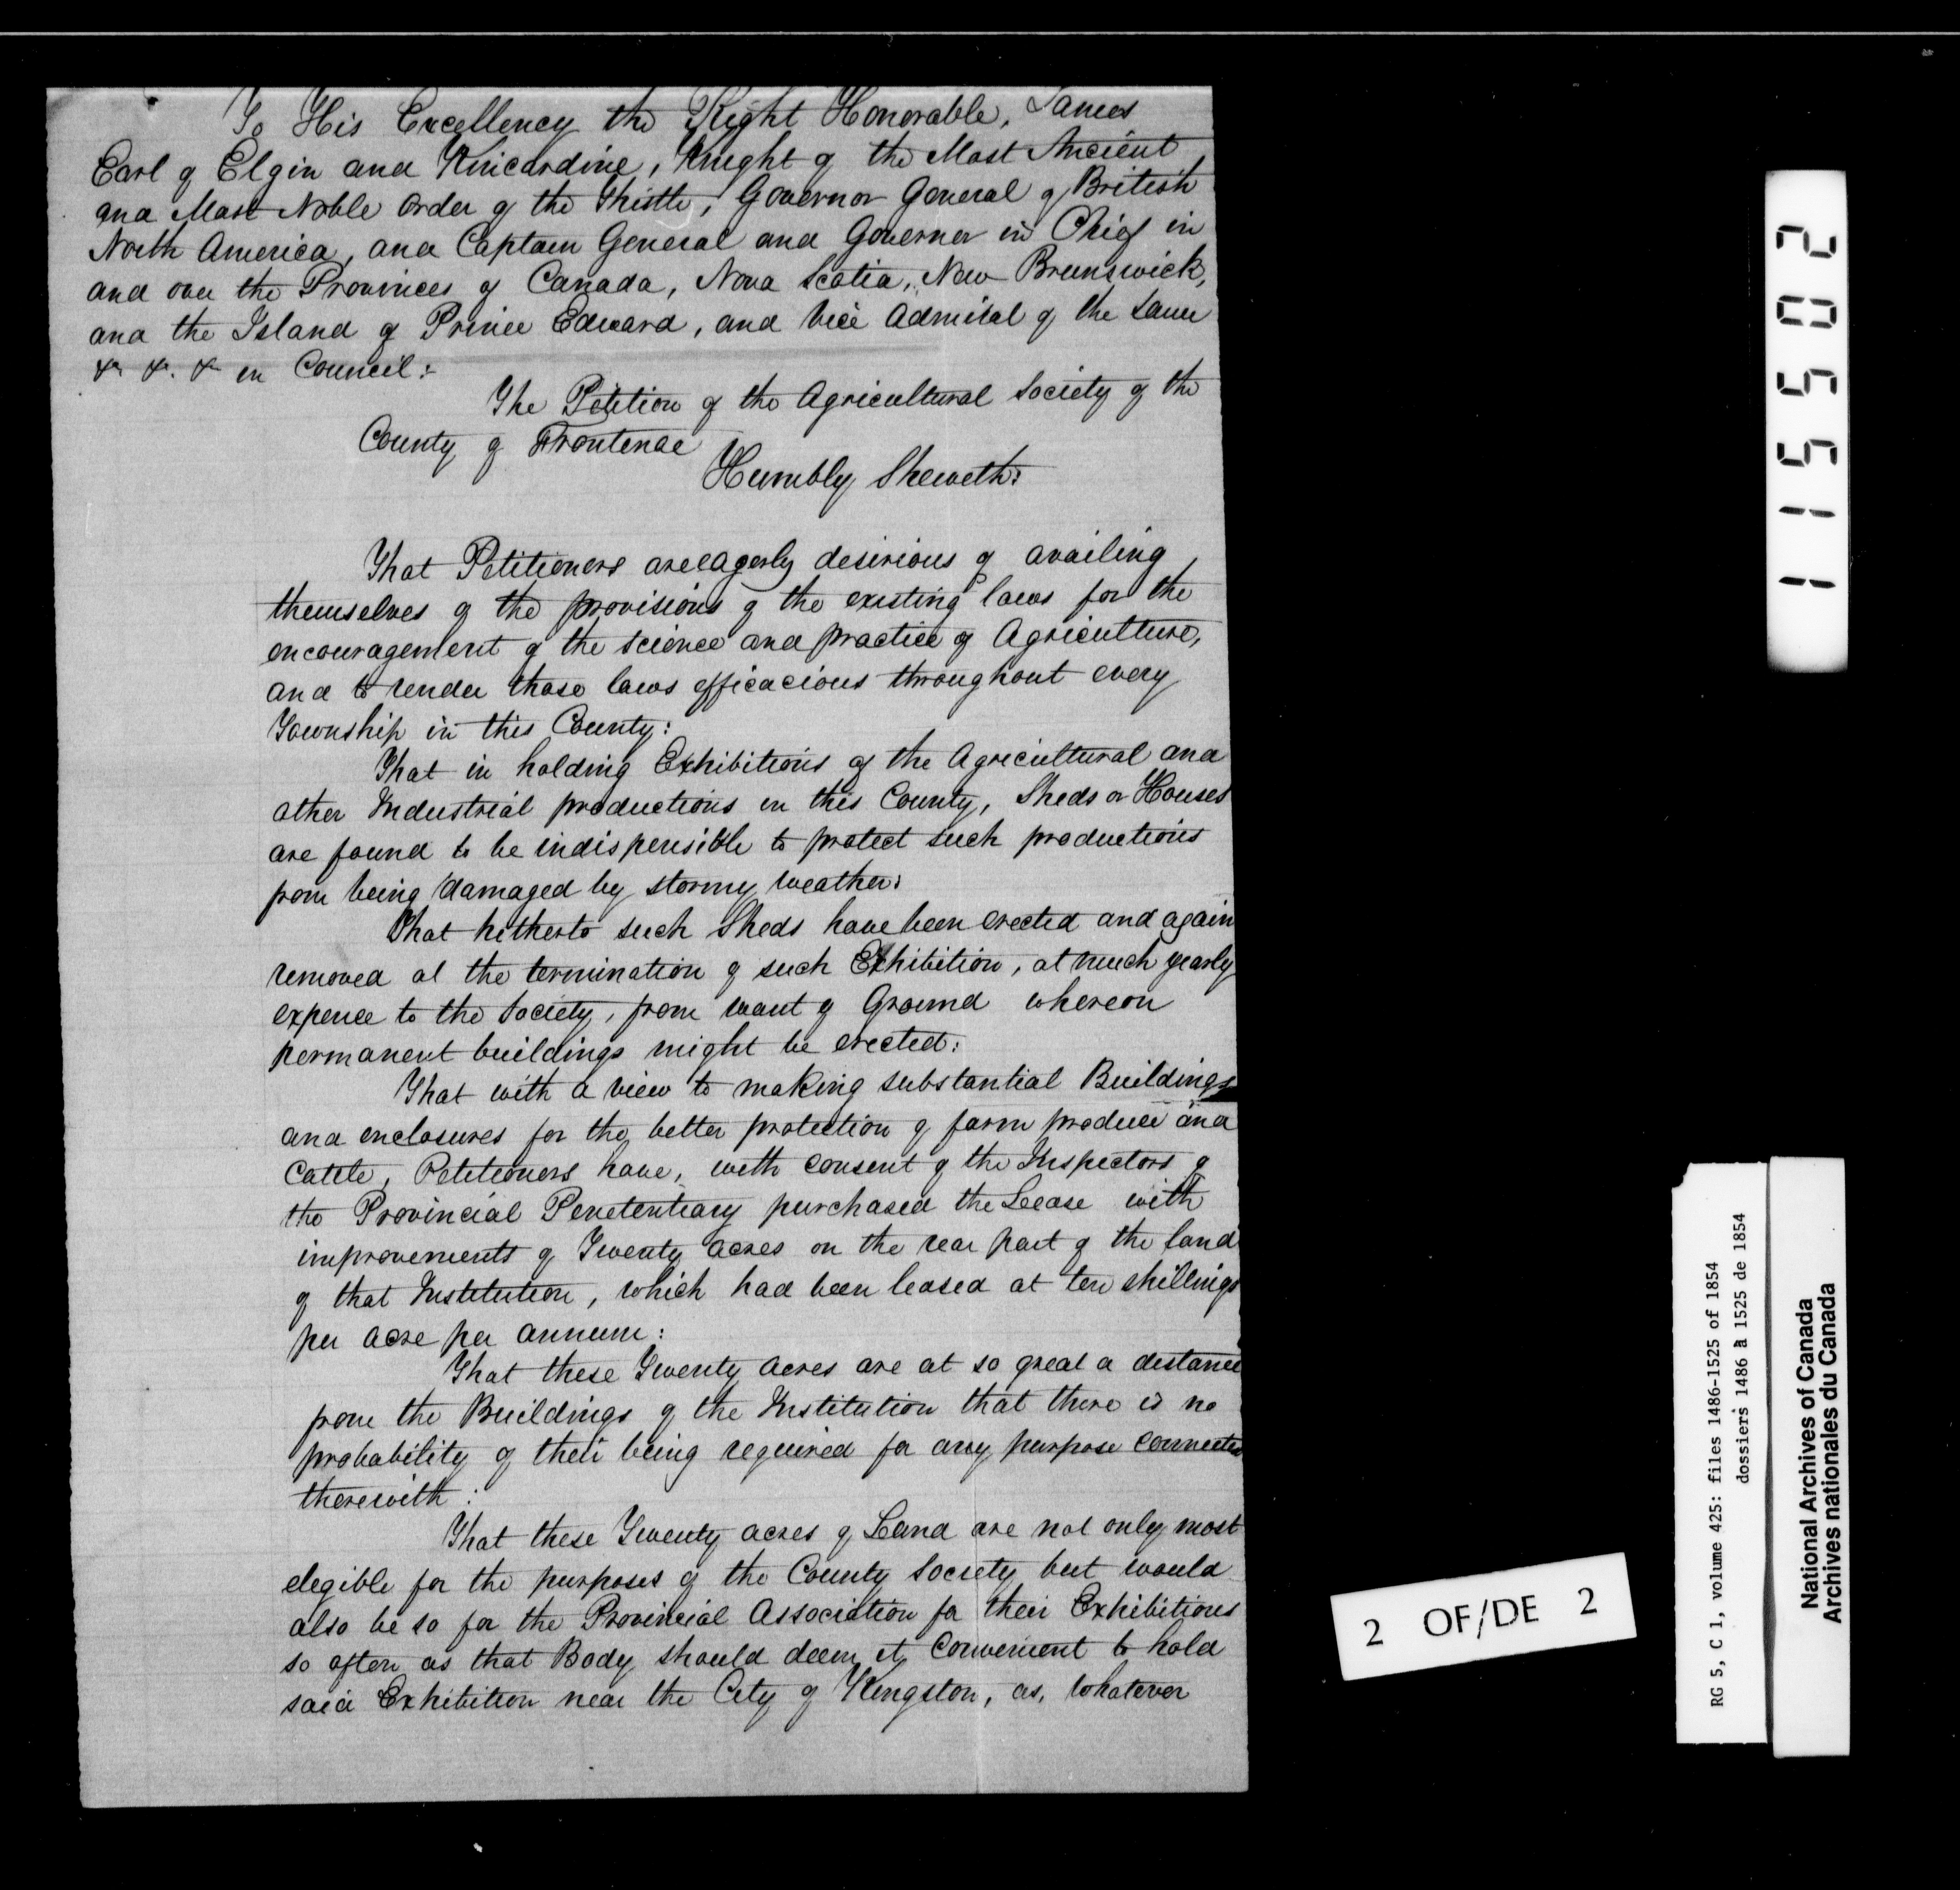 To His Excellency the Right Honorable, James
Earl of Elgin and Kincardine, Knight of the Most Ancient
and Most Noble Order of the Thistle, Governor General of British
North America, and Captain General and Governor in Chief in
and over the Provinces of Canada, Nova Scotia, New Brunswick,
and the Island of Prince Edward, and Vice Admiral of the same
&c &c. &c in Council:
The Petition of the Agricultural Society of the
County of Frontenac
Humbly Sheweth:
That Petitioners are eagerly desirious of availing
themselves of the provisions of the existing laws for the
encouragement of the science and practice of Agriculture,
and to render those laws efficacious throughout every
Township in this County:
That in holding Exhibitions of the Agricultural and
other Industrial productions in this County, Sheds or Houses
are found to be indispensible to protect such productions
from being damaged by stormy weather:
That hitherto such Sheds have been erected and again
removed at the termination of such Exhibition, at much yearly
expence to the Society, from want of Ground whereon
permanent buildings might be erected:
That with a view to making substantial Buildings
and enclosures for the better protection of farm produce and
Cattle, Petitioners have, with consent of the Inspectors of
the Provincial Penetentiary purchased the Lease with
improvements of Twenty acres on the rear part of the land
of that Institution, which had been leased at ten shillings
per acre per annum:
That these Twenty acres are at so great a distance
from the Buildings of the Institution that there is no
probability of their being required for any purpose connected
therewith:
That these Twenty acres of Land are not only most
elegible for the purposes of the County Society but would
also be so for the Provincial Association for their Exhibitions
so often as that Body should deem it Convenient to hold
said Exhibition near the City of Kingston, as, whatever
115502
2 OF/DE 2
RG 5, C 1, volume 425: files 1486-1525 of 1854
dossiers 1486 à 1525 de 1854
National Archives of Canada
Archives nationales du Canada